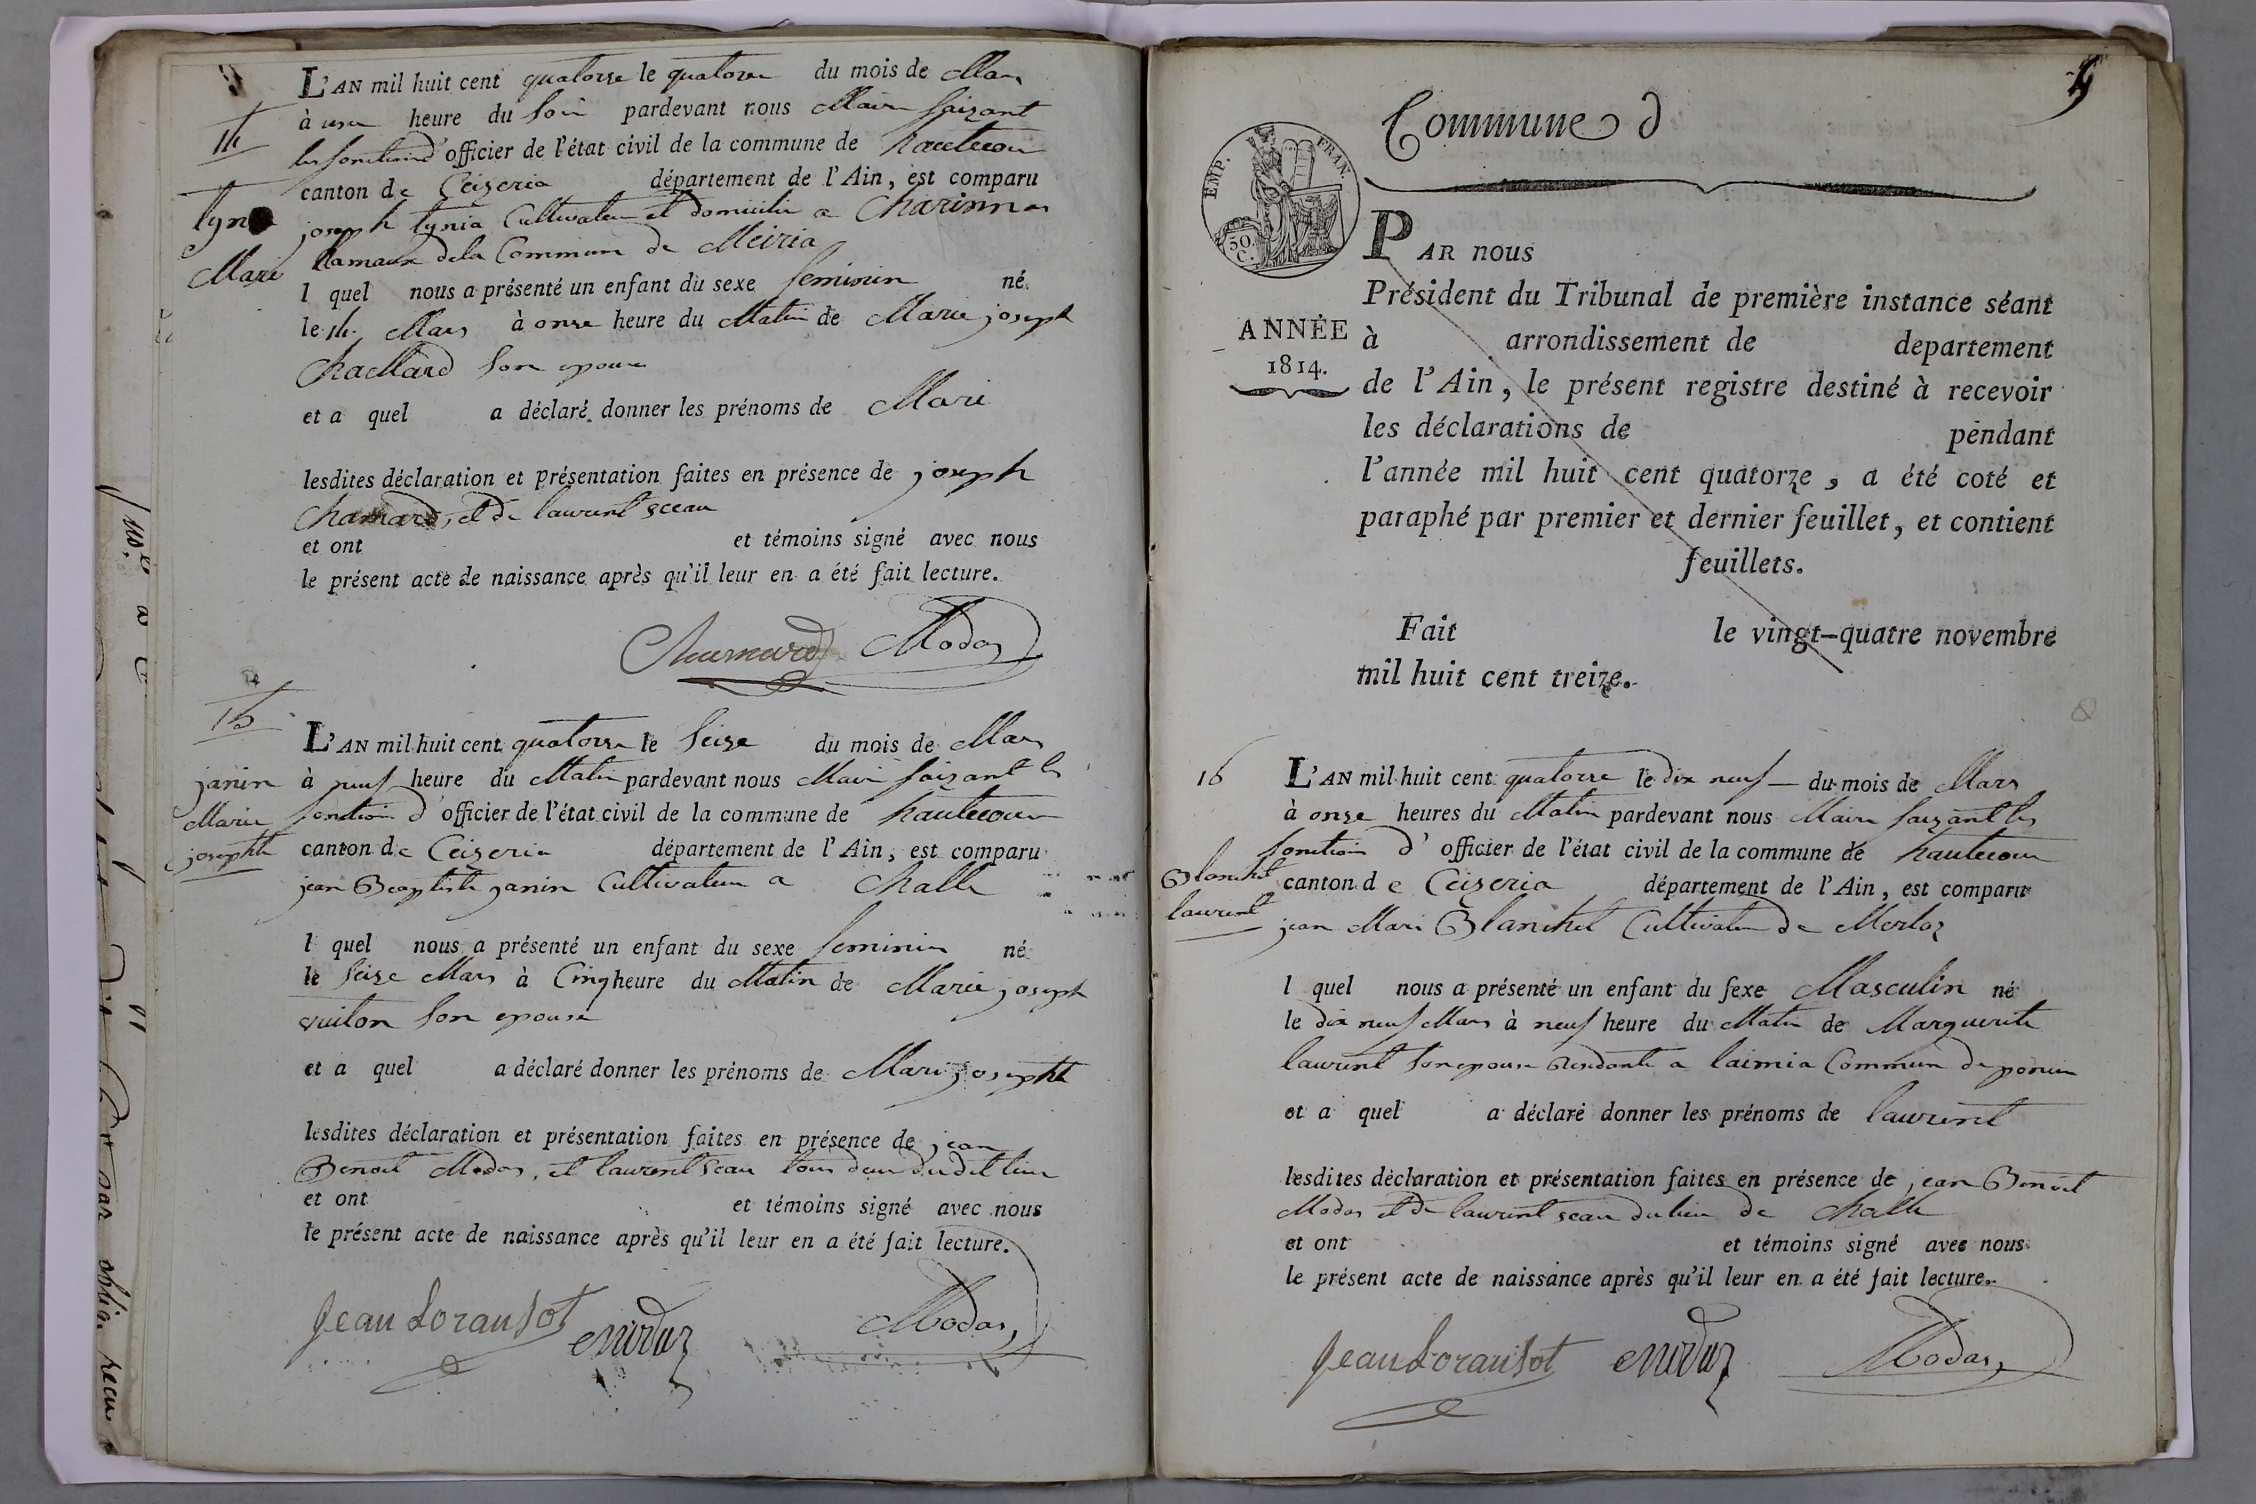 14
Tyn
Marie
L'AN mil huit cent quatorze le quatorze du mois de Mars
à une heure du soir pardevant nous Maire faizant
les fonctions d'officier de l'état civil de la commune de hautecour
canton de Ceizeria département de l'Ain, est comparu
joseph tynia Cultivateur et domicilié a Charinas
hamaux de la Commune de Meiria
l quel nous a présenté un enfant du sexe feminin né
le 14 Mars à onze heure du Matin de Marie joseph
Chamard son epouse
et a quel a déclaré donner les prénoms de Marie
lesdites déclaration et présentation faites en présence de joseph
Chamard, et de laurent sceau
et ont et témoins signé avec nous
le présent acte de naissance après qu'il leur en a été fait lecture.
Chamard Modas
15
janin
Marie
josephte
L'AN mil huit cent quatorze le seize du mois de Mars
à neuf heure du Matin pardevant nous Maire faizant les
fonction d'officier de l'état civil de la commune de hautecour
canton de Ceizeria département de l'Ain, est comparu
jean Baptiste janin Cultivateur a Challe
l quel nous a présenté un enfant du sexe feminin né
le seize Mars à Cinq heure du Matin de Marie joseph
vuiton son epouse
et a quel a déclaré donner les prénoms de Marie josephte
lesdites déclaration et présentation faites en présence de jean
Benoit Modas, et laurent seau tous deux dudit lieu
et ont et témoins signé avec nous
le présent acte de naissance après qu'il leur en a été fait lecture.
Jean Loran sot Modas
9
Commune d
EMP. FRAN.
50. C.
ANNÉE
1814.
PAR nous
Président du Tribunal de première instance séant
à arrondissement de departement
de l'Ain, le présent registre destiné à recevoir
les déclarations de pendant
l'année mil huit cent quatorze, a été coté et
paraphé par premier et dernier feuillet, et contient
feuillets.
Fait le vingt-quatre novembre
mil huit cent treize.
16
Blanchet
laurent
L'AN mil huit cent quatorze le dix neuf du mois de Mars
à onze heures du Matin pardevant nous Maire faizant les
fonction d'officier de l'état civil de la commune de hautecour
canton de Ceizeria département de l'Ain, est comparu
jean Marie Blanchet Cultivateur de Merloz
l quel nous a présenté un enfant du sexe Masculin né
le dix neuf Mars à neuf heure du Matin de Marguerite
laurent son epouse residante a laimia Commune de poncin
et a quel a déclaré donner les prénoms de laurent
lesdites déclaration et présentation faites en présence de jean Benoit
Modas et de laurent seau du lieu de Challe
et ont et témoins signé avec nous
le présent acte de naissance après qu'il leur en a été fait lecture.
Jean Loran sot Modas